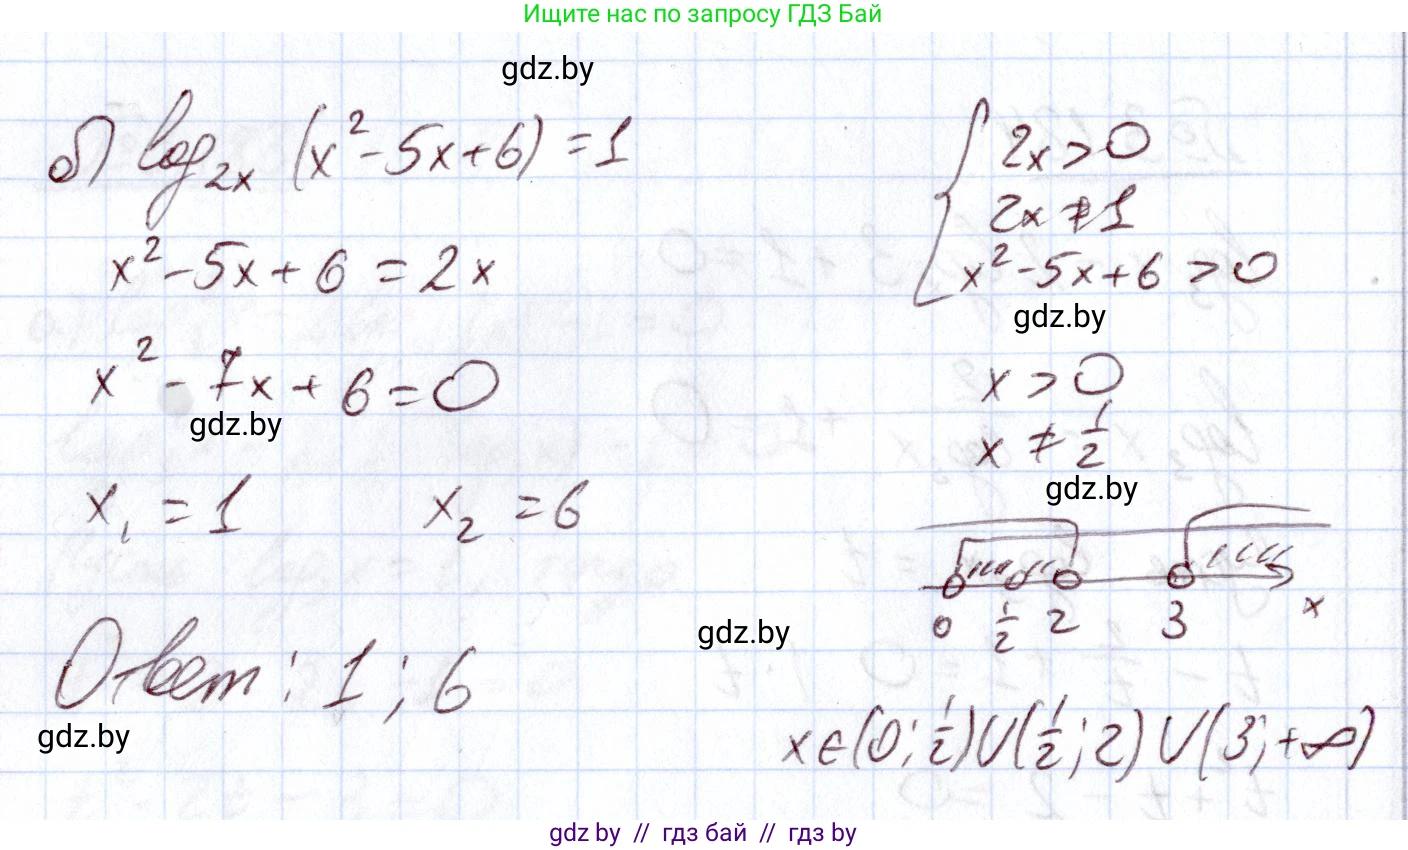 Ищите нас по запросу ГДЗ Бай
gdz.by
б) log₂ₓ (x² - 5x + 6) = 1
x² - 5x + 6 = 2x
x² - 7x + 6 = 0
gdz.by
x₁ = 1 x₂ = 6
Ответ: 1; 6
gdz.by
2x > 0
2x ≠ 1
x² - 5x + 6 > 0
gdz.by
x > 0
x ≠ 1/2
gdz.by
0 1/2 2 3 x
gdz.by
x ∈ (0; 1/2) ∪ (1/2; 2) ∪ (3; +∞)
gdz.by // гдз бай // гдз by